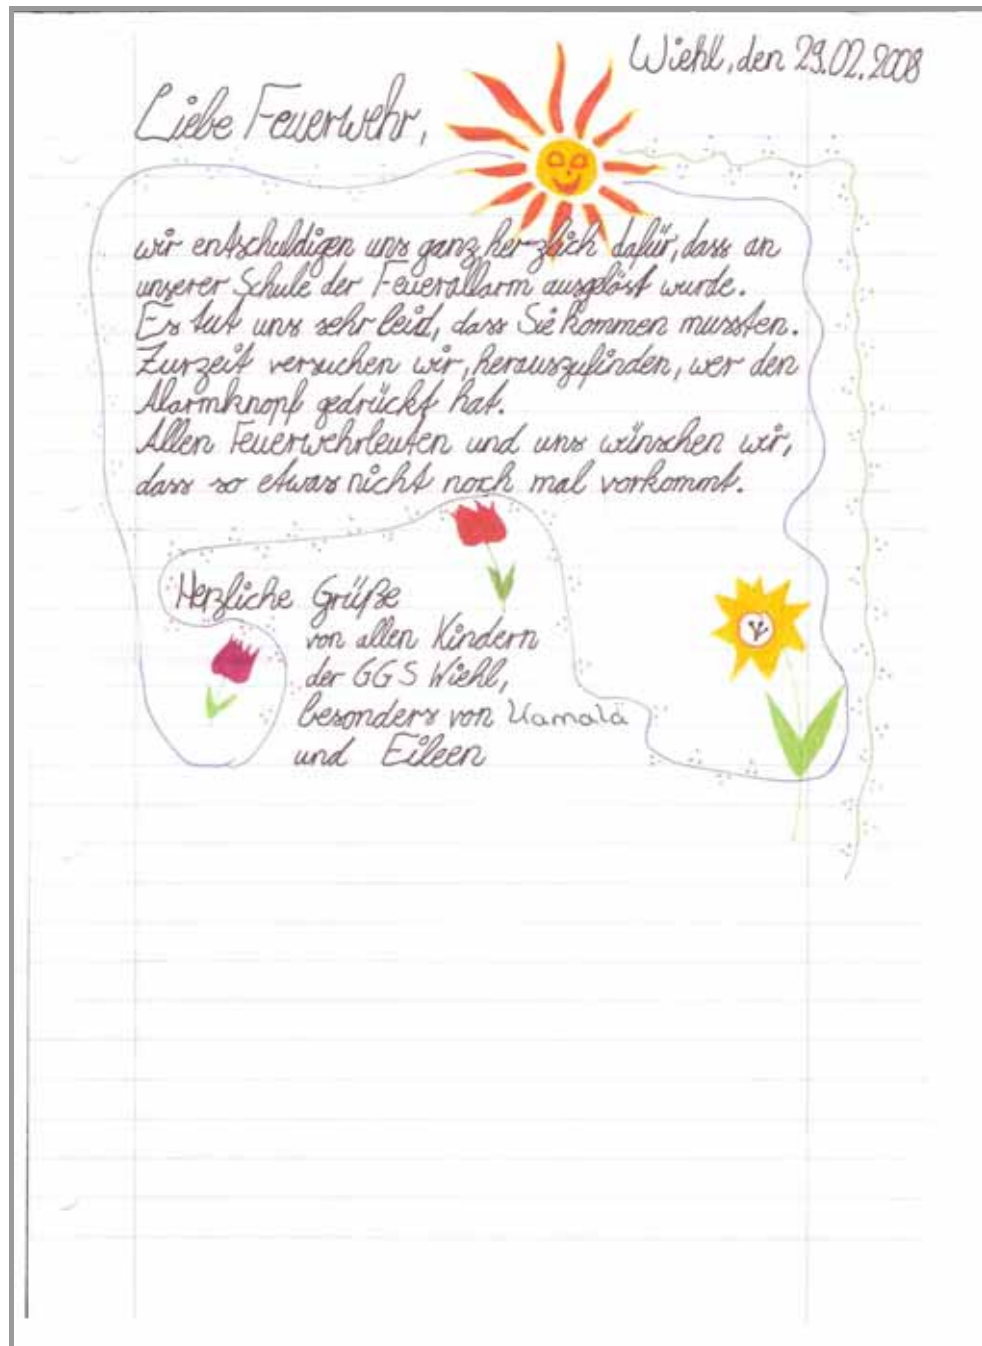 Wiehl, den 29.02.2008
Liebe Feuerwehr,
wir entschuldigen uns ganz her-zlich dafür, dass an
unserer Schule der Feuerallarm ausgelöst wurde.
Es tut uns sehr leid, dass Sie kommen mussten.
Zurzeit versuchen wir, herauszufinden, wer den
Alarmknopf gedrückt hat.
Allen Feuerwehrleuten und uns wünschen wir,
dass so etwas nicht noch mal vorkommt.
Herzliche Grüße
von allen Kindern
der GGS Wiehl,
besonders von Kamala
und Eileen